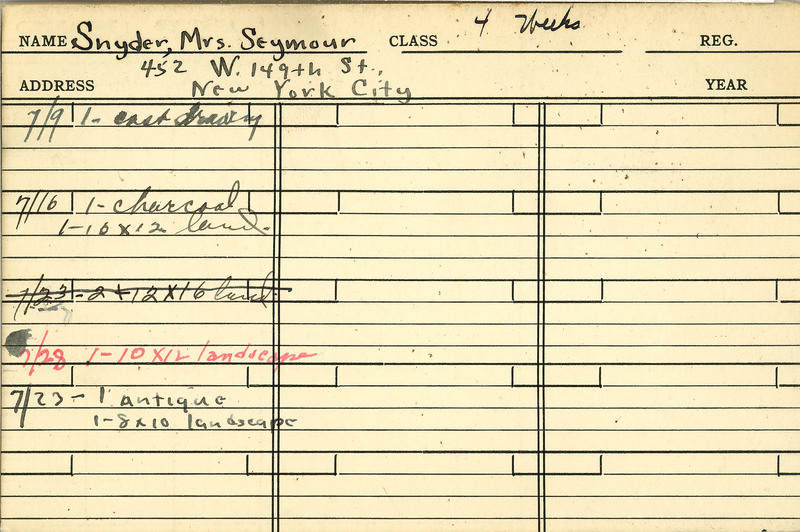 NAME Snyder, Mrs. Seymour CLASS 4 Weeks REG.
452 W. 149th St.,
ADDRESS New York City YEAR
7/9 1- cast drawing
7/16 1- charcoal
1-10x12 land.
7/23 - 2 + 12x16 land.
7/28 1-10x12 landscape
7/23 - 1 antique
1-8x10 landscape